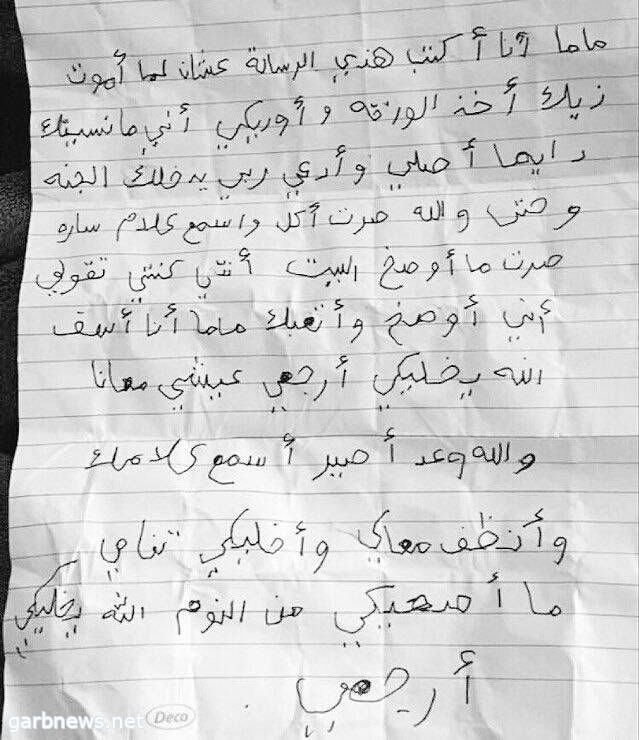 ماما أنا أكتب هذي الرسالة عشان لما أموت
زيك أخذ الورقه و أوريكي أني مانسيتك
دايما أصلي وأدعي ربي يدخلك الجنه
وحتى والله صرت أكل واسمع كلام ساره
صرت ما أوصخ البيت أنتي كنتي تقولي
أني أوصخ وأتعبك ماما أنا أسف
الله يخليكي أرجعي عيشي معانا
والله وعد أصير أسمع كلامك
وأنظف معاكي وأخليكي تنامي
ما أصحيكي من النوم الله يخليكي
أرجعي
garbnews.net
Deco